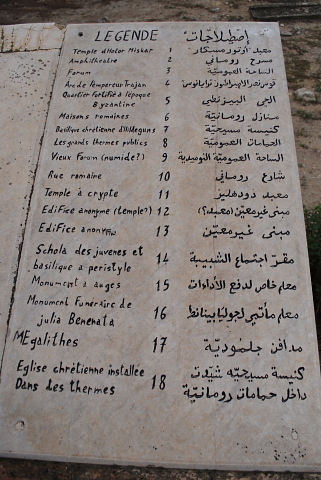 LEGENDE إصطلاحات
Temple d'Hator Miskar 1 معبد أوتور مسكار
Amphitheatre 2 مسرح روماني
Forum 3 الساحة العمومية
Arc de l'empereur Trajan 4 قوس نصر الامبراطور ترايانوس
Quartier fortifié à l'époque
Byzantine 5 الحي البيزنطي
Maisons romaines 6 منازل رومانية
Basilique chrétienne d'Hildeguns 7 كنيسة مسيحية
Les grands thermes publics 8 الحمامات العمومية
Vieux Forum (numide?) 9 الساحة العمومية النوميدية
Rue romaine 10 شارع روماني
Temple à crypte 11 معبد ذو دهليز
Edifice anonyme (temple?) 12 مبنى غير معين (معبد؟)
Edifice anonyme 13 مبنى غير معين
Schola des juvenes et
basilique a peristyle 14 مقر اجتماع الشبيبة
Monument a auges 15 معلم خاص لدفع الأداءات
Monument Funéraire de
julia Benenata 16 معلم مأتمي لجوليا بيناناطا
MEgalithes 17 مدافن جلمودية
Eglise chrétienne installée
Dans les thermes 18 كنيسة مسيحية شيدت
داخل حمامات رومانية